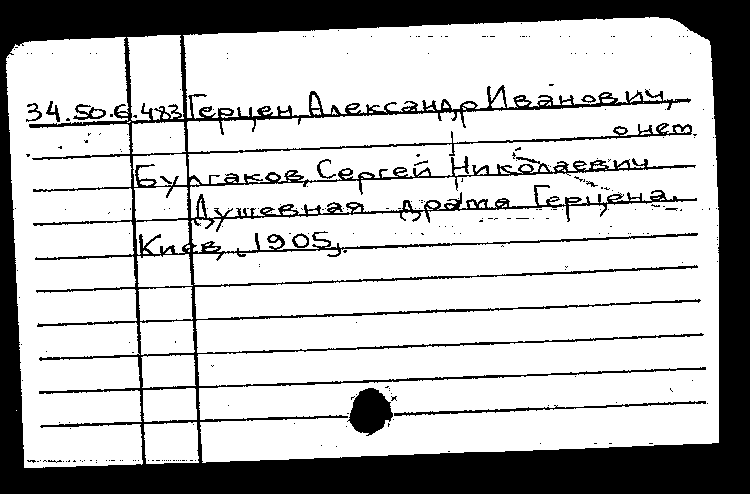 34.50.6.483 Герцен, Александр Иванович,
о нем
Булгаков, Сергей Николаевич
Душевная драма Герцена.
Киев, 1905.